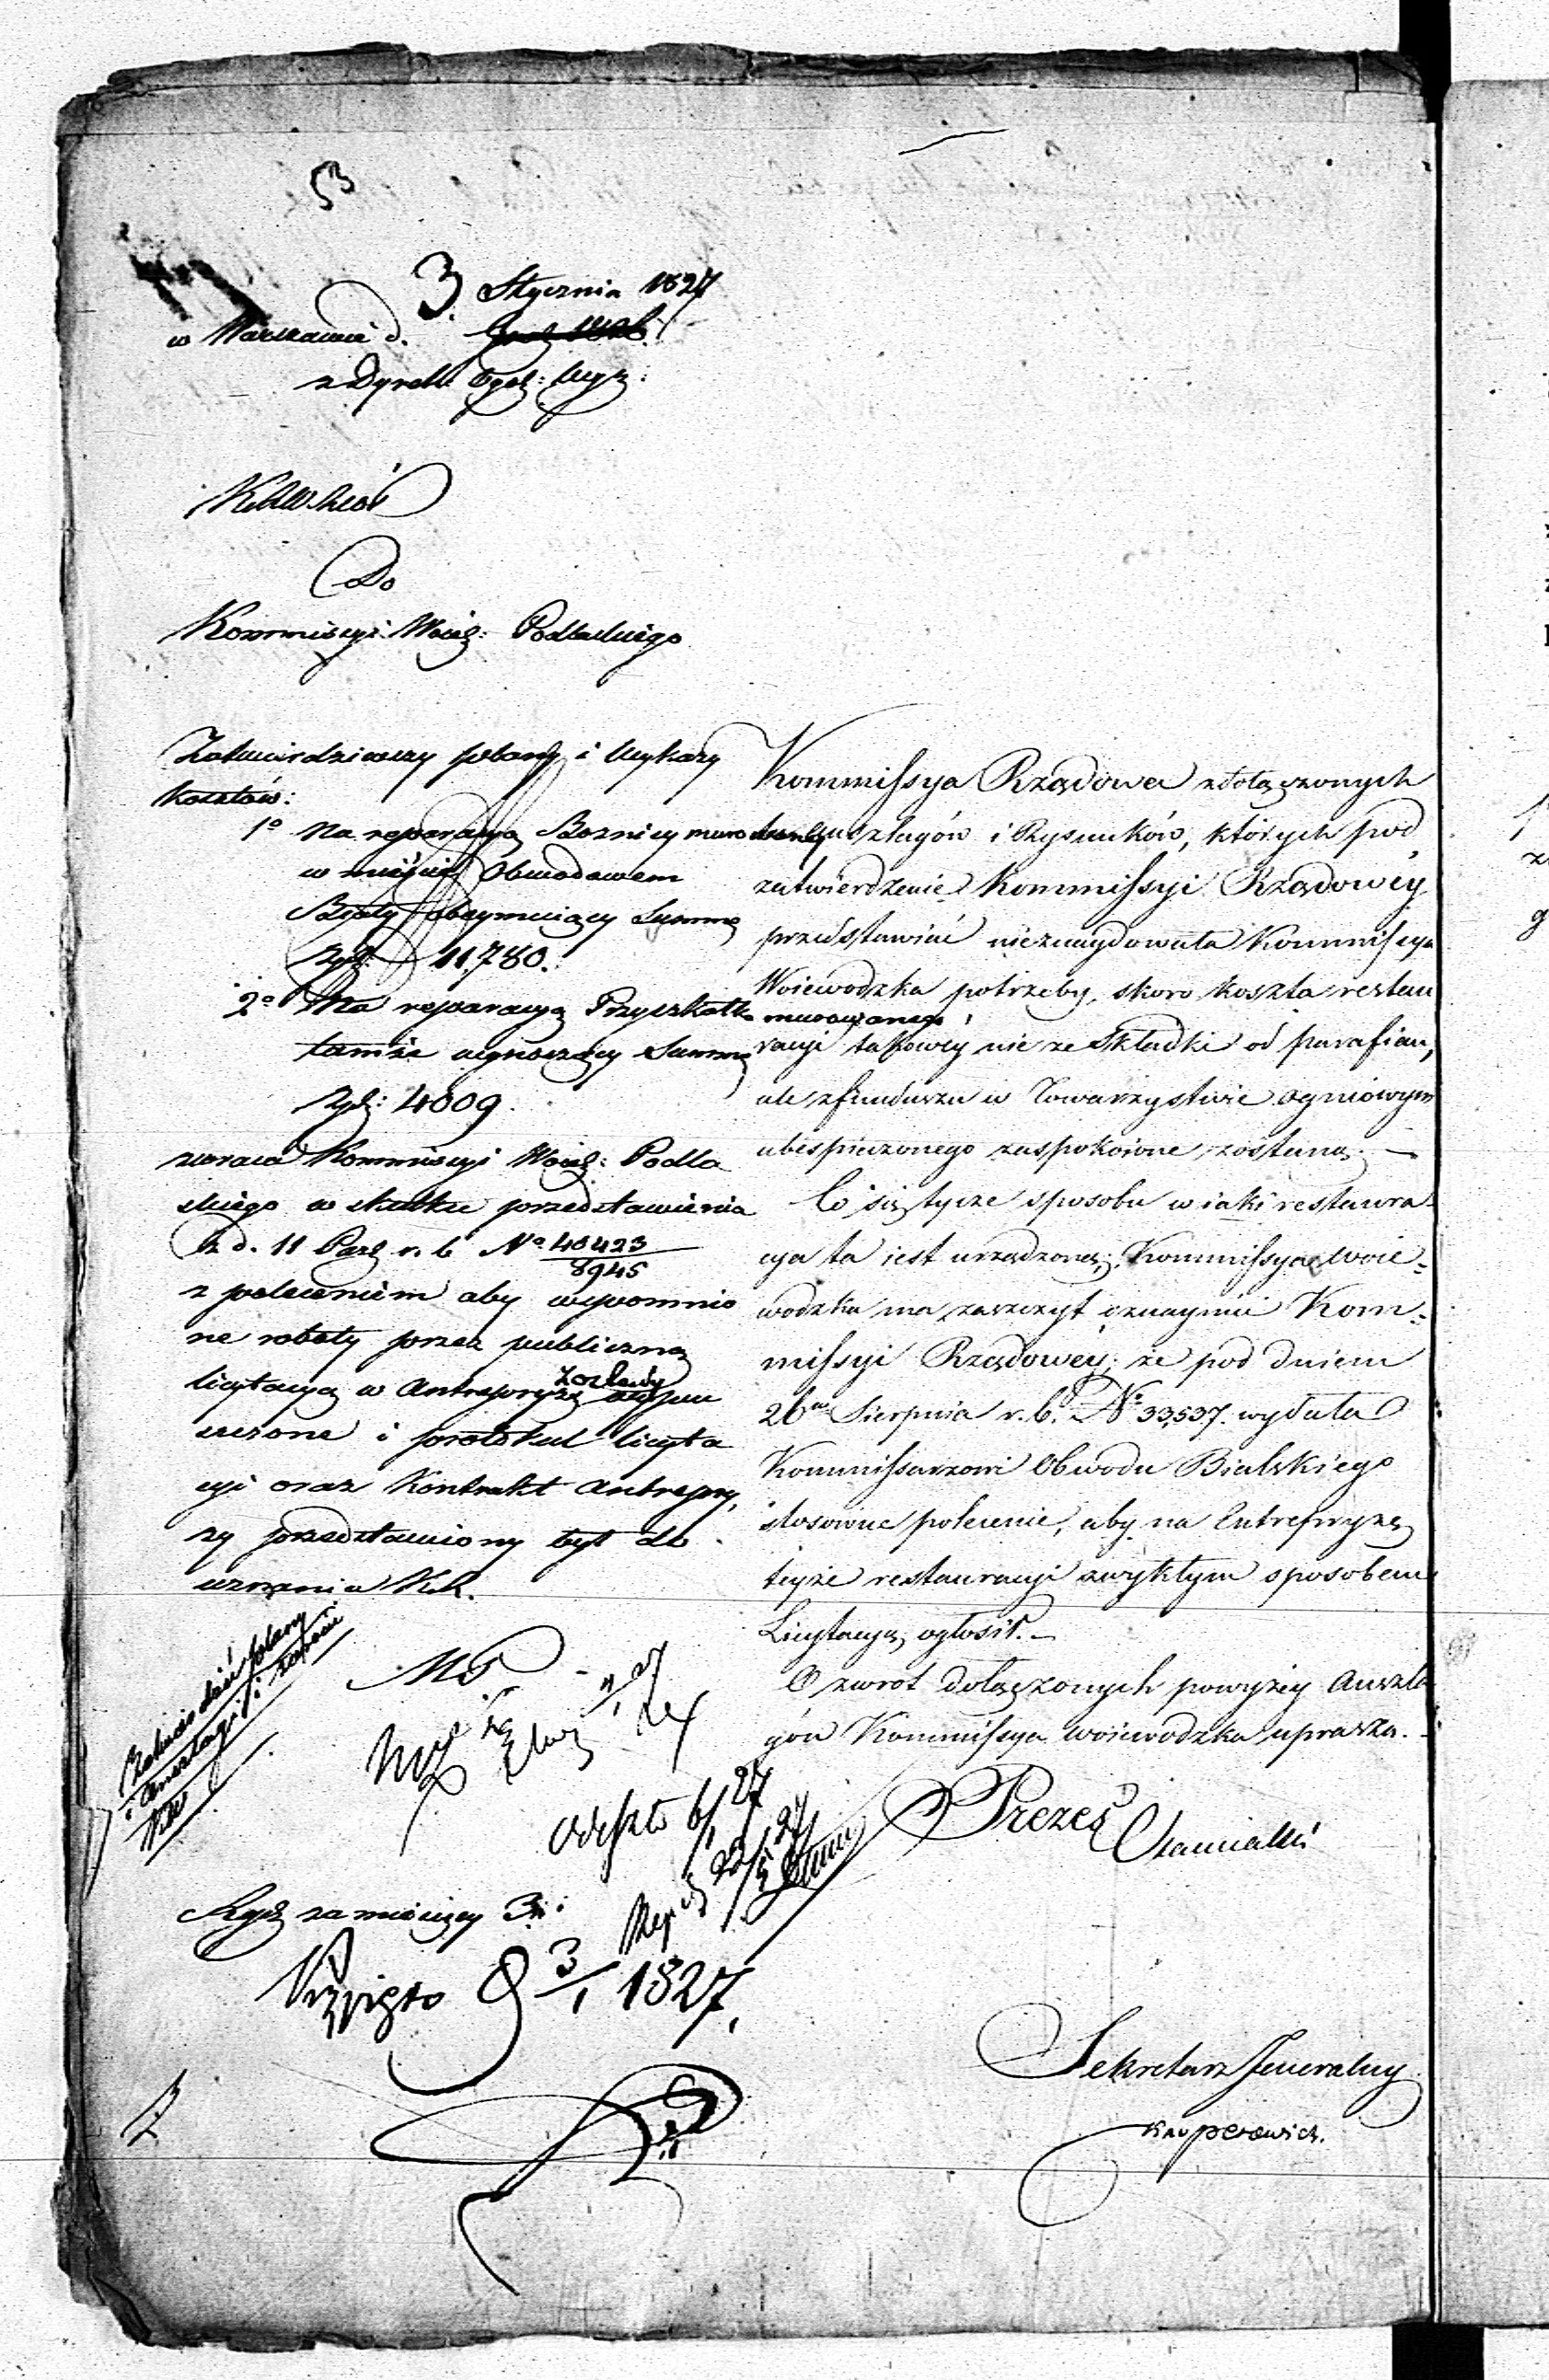 53
3 Stycznia 1827
w Warszawie d.
z Dyrek: Ogól: Wyz:
Do
Kommissyi Woiew: Podlaskiego
Zatwierdziwszy plany i wykazy
kosztów:
1º na reparacyą Bożnicy muro
w mieście Obwodowem
Białej obeymuiący Summę
Zył: 11,780.
2º Na reparacyą Przyszkołka
murowanego
tamże wynoszący Summę
Złp: 4009.
zwraca Kommissyi Woiew: Podla
skiego w skutku przedstawienia
z d. 11 Paźd. r. b. Nº 40423
8945
z poleceniem aby wspomnio
ne roboty przez publiczną
licytacyą w antrepryzę zostały
szczone i protokuł licyta
cyi oraz Kontrakt antrepry
zy przedstawiony był do
uznania K.R.
Odeszło 6/1 27
za mieiscy 3
Przyięto 3/1 1827.
Kommissya Rządowa z dołączonych
anszlagów i Rysunków, których pod
zatwierdzenie Kommissyi Rządowey
przedstawiać nieznaydowała Kommissya
Woiewodzka potrzeby, skoro koszta restau
racyi takowey nie ze składki od parafian,
ale z funduszu w Towarzystwie ogniowym
ubespieczonego zaspokoione zostaną. —
Co się tycze sposobu w iaki restaura-
cya ta iest urządzoną; Kommissya Woie=
wodzka ma zaszczyt oznaymić Kom=
missyi Rządowey; że pod dniem
26m Sierpnia r. b. Nº 33,537. wydała
Kommissarzowi Obwodu Bialskiego
stosowne polecenie, aby na Entrepryzę
teyże restauracyi zwykłym sposobem
Licytacyą ogłosił. —
O zwrot dołączonych powyżey anszla
gów Kommissya Woiewodzka uprasza. —
Prezes
Sekretarz Jeneralny